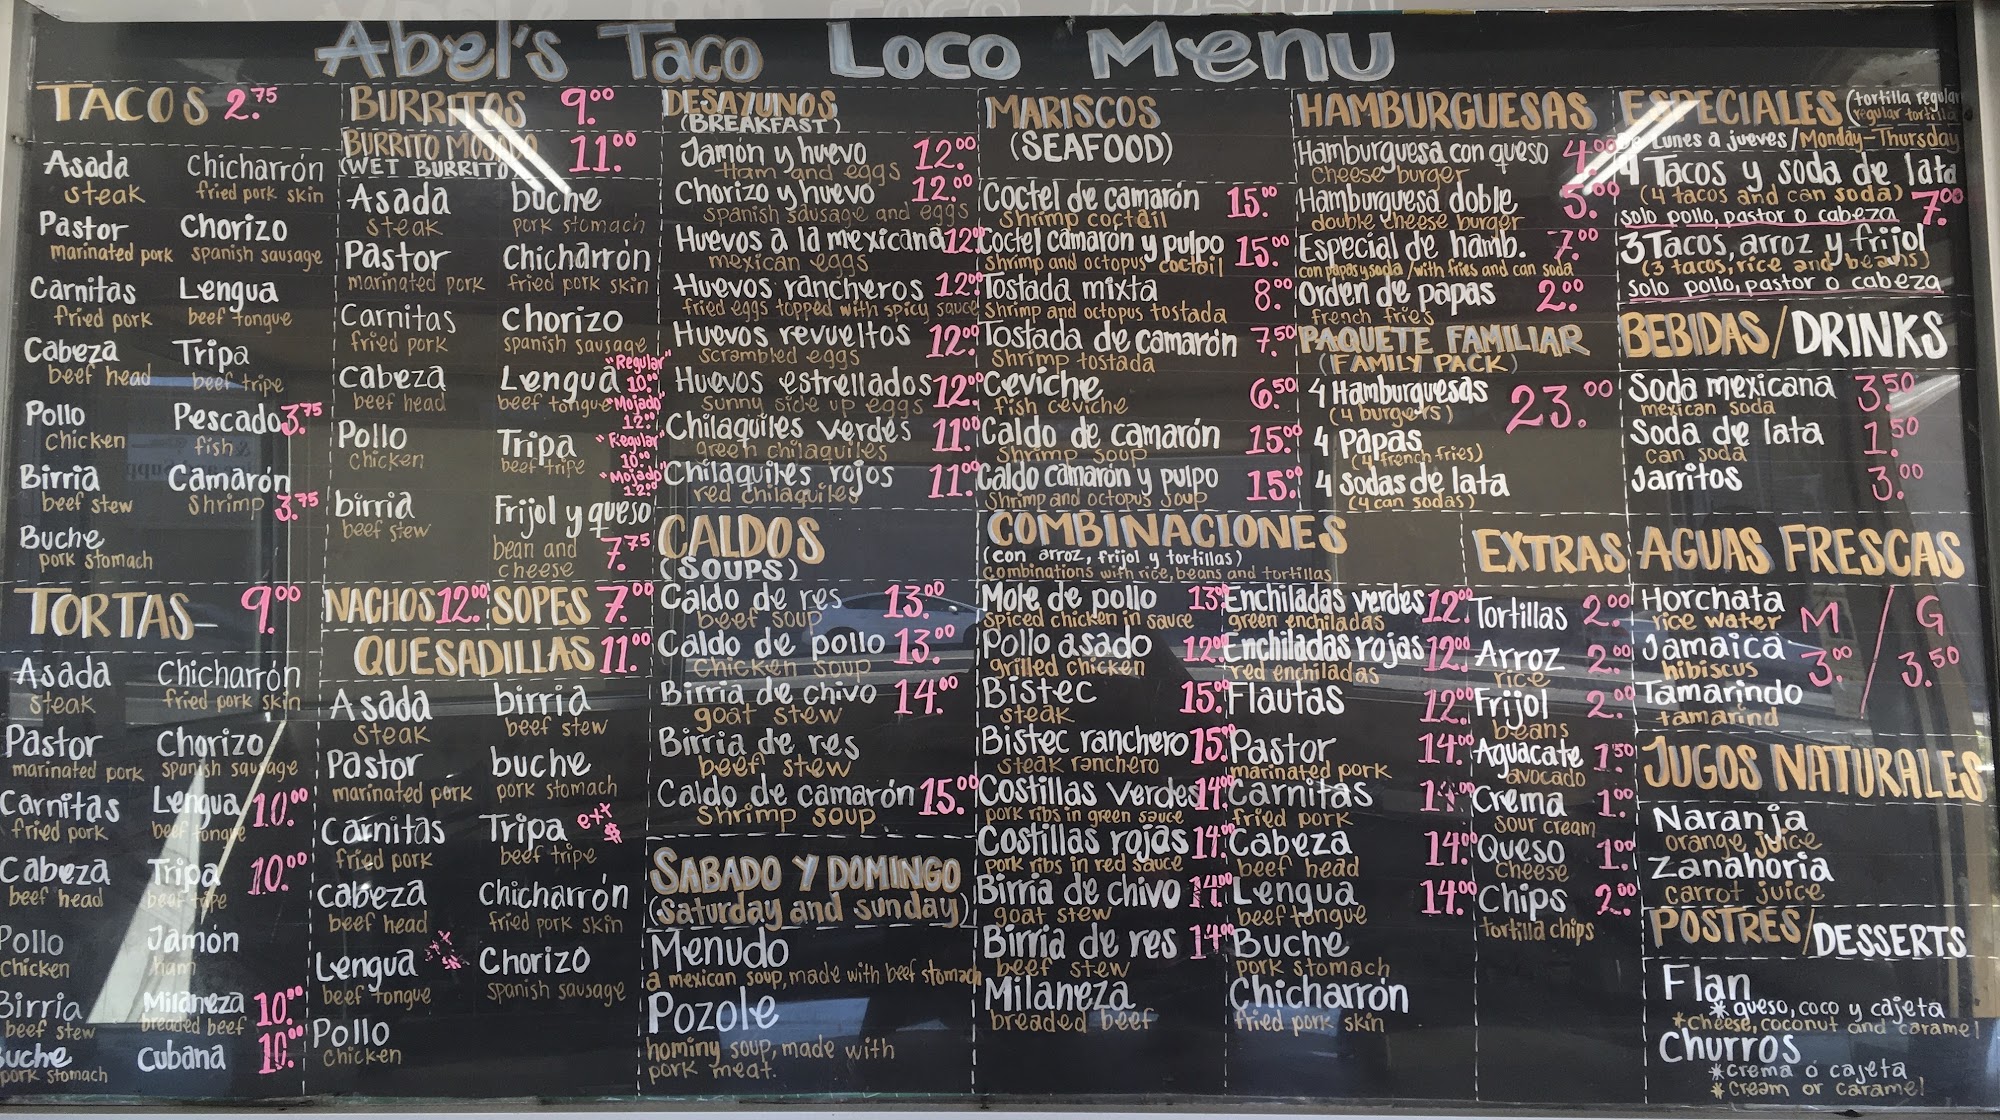 Abel's Taco Loco Menu
TACOS 2.75
Asada
steak
Pastor
marinated pork
Carnitas
fried pork
Cabeza
beef head
Pollo
chicken
Birria
beef stew
Buche
pork stomach
Chicharrón
fried pork skin
Chorizo
spanish sausage
Lengua
beef tongue
Tripa
beef tripe
Pescado 3.75
fish
Camarón
Shrimp 3.75
TORTAS- 9.00
Asada
steak
Pastor
marinated pork
Carnitas
fried pork
Cabeza
beef head
Pollo
chicken
Birria
beef stew
Buche
pork stomach
Chicharrón
fried pork skin
Chorizo
spanish sausage
Lengua 10.00
beef tongue
Tripa 10.00
beef tripe
Jamón
ham
Milaneza 10.00
breaded beef
Cubana 10.00
BURRITOS 9.00
BURRITO MOJADO 11.00
(WET BURRITO)
Asada
steak
Pastor
marinated pork
Carnitas
fried pork
Cabeza
beef head
Pollo
chicken
birria
beef stew
buche
pork stomach
Chicharrón
fried pork skin
Chorizo
spanish sausage
"Regular"
Lengua 10.00
beef tongue "Mojado"
12.00
Tripa "Regular"
beef tripe 10.00
"Mojado"
12.00
Frijol y queso
bean and
cheese 7.75
NACHOS 12.00 SOPES 7.00
QUESADILLAS 11.00
Asada
steak
Pastor
marinated pork
Carnitas
fried pork
Cabeza
beef head
Lengua
beef tongue
Pollo
chicken
birria
beef stew
buche
pork stomach
Tripa ext $
beef tripe
Chicharrón
fried pork skin
Chorizo
spanish sausage
DESAYUNOS
(BREAKFAST)
Jamón y huevo 12.00
Ham and eggs
Chorizo y huevo 12.00
spanish sausage and eggs
Huevos a la mexicana 12.00
mexican eggs
Huevos rancheros 12.00
fried eggs topped with spicy sauce
Huevos revueltos 12.00
scrambled eggs
Huevos estrellados 12.00
sunny side up eggs
Chilaquiles verdes 11.00
green chilaquiles
Chilaquiles rojos 11.00
red chilaquiles
CALDOS
(SOUPS)
Caldo de res 13.00
beef soup
Caldo de pollo 13.00
chicken soup
Birria de chivo 14.00
goat stew
Birria de res
beef stew
Caldo de camarón 15.00
Shrimp soup
SABADO Y DOMINGO
(saturday and sunday)
Menudo
a mexican soup, made with beef stomach
Pozole
hominy soup, made with
pork meat.
MARISCOS
(SEAFOOD)
Coctel de camarón 15.00
Shrimp coctail
Coctel camarón y pulpo 15.00
shrimp and octopus coctail
Tostada mixta 8.00
Shrimp and octopus tostada
Tostada de camarón 7.50
Shrimp tostada
Ceviche 6.50
fish ceviche
Caldo de camarón 15.00
Shrimp soup
Caldo camarón y pulpo 15.00
Shrimp and octopus soup
COMBINACIONES
(con arroz, frijol y tortillas)
combinations with rice, beans and tortillas
Mole de pollo 13.00
spiced chicken in sauce
Pollo asado 12.00
grilled chicken
Bistec 15.00
steak
Bistec ranchero 15.00
steak ranchero
Costillas verdes 14.00
pork ribs in green sauce
Costillas rojas 14.00
pork ribs in red sauce
Birria de chivo 14.00
goat stew
Birria de res 14.00
beef stew
Milaneza
breaded beef
Enchiladas verdes 12.00
green enchiladas
Enchiladas rojas 12.00
red enchiladas
Flautas 12.00
Pastor 14.00
marinated pork
Carnitas 14.00
fried pork
Cabeza 14.00
beef head
Lengua 14.00
beef tongue
Buche
pork stomach
Chicharrón
fried pork skin
HAMBURGUESAS
Hamburguesa con queso 4.00
cheese burger
Hamburguesa doble 5.00
double cheese burger
Especial de hamb. 7.00
con papas y soda / with fries and can soda
Orden de papas 2.00
french fries
PAQUETE FAMILIAR
(FAMILY PACK)
4 Hamburguesas 23.00
(4 burgers)
4 Papas
(4 french fries)
4 Sodas de lata
(4 can sodas)
EXTRAS
Tortillas 2.00
Arroz 2.00
rice
Frijol 2.00
beans
Aguacate 1.50
avocado
Crema 1.00
sour cream
Queso 1.00
cheese
Chips 2.00
tortilla chips
ESPECIALES (tortilla regular
regular tortilla
Lunes a jueves / Monday-Thursday
4 Tacos y soda de lata
(4 tacos and can soda) 7.00
solo pollo, pastor o cabeza
3 Tacos, arroz y frijol
(3 tacos, rice and beans)
solo pollo, pastor o cabeza
BEBIDAS / DRINKS
Soda mexicana 3.50
mexican soda
Soda de lata 1.50
can soda
Jarritos 3.00
AGUAS FRESCAS
Horchata M / G
rice water
Jamaica 3.00 / 3.50
hibiscus
Tamarindo
tamarind
JUGOS NATURALES
Naranja
orange juice
Zanahoria
carrot juice
POSTRES/DESSERTS
Flan
*queso, coco y cajeta
*cheese, coconut and caramel
Churros
*crema ó cajeta
*cream or caramel